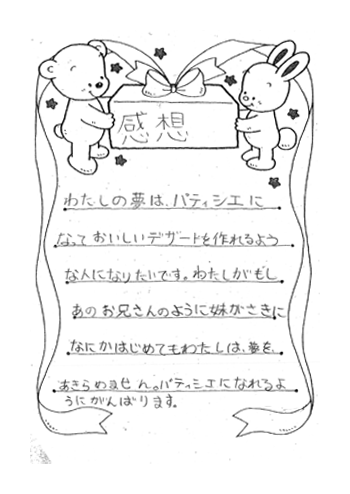 感想
わたしの夢は、パティシエに
なっておいしいデザートを作れるよう
な人になりたいです。わたしがもし
あのお兄さんのように妹がさきに
なにかはじめてもわたしは、夢を、
あきらめません。パティシエになれるよ
うにがんばります。